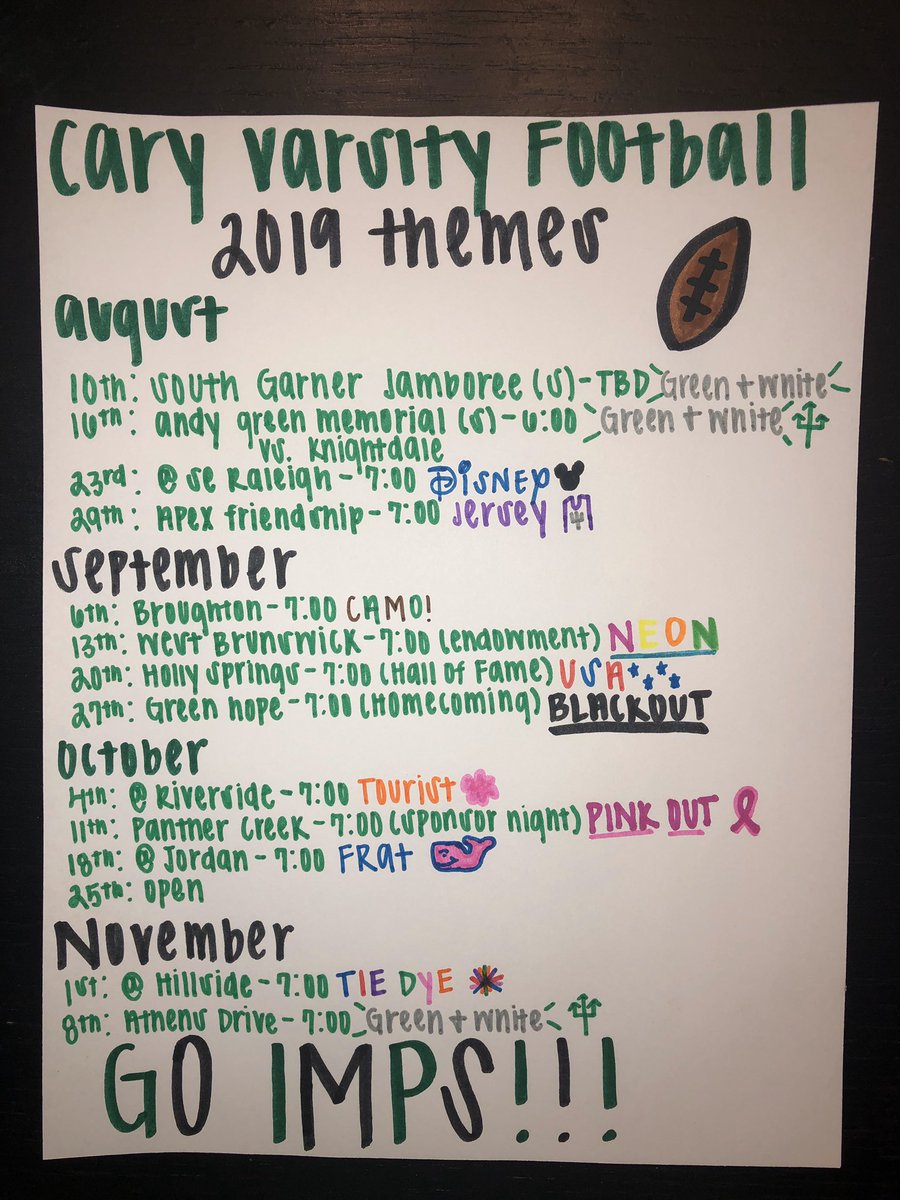 Cary Varsity Football
2019 themes
August
10th: South Garner Jamboree (S)-TBD Green + White
16th: andy green memorial (S)-6:00 Green + White
vs. Knightdale
23rd: @ SE Raleigh-7:00 DISNEY
29th: Apex friendship-7:00 Jersey
September
6th: Broughton-7:00 CAMO!
13th: West Brunswick-7:00 (endowment) NEON
20th: Holly Springs-7:00 (Hall of Fame) USA
27th: Green hope-7:00 (Homecoming) BLACKOUT
October
4th: @ Riverside-7:00 Tourist
11th: Panther Creek-7:00 (sponsor night) PINK OUT
18th: @ Jordan-7:00 FRAT
25th: open
November
1st: @ Hillside-7:00 TIE DYE
8th: Athens Drive-7:00 Green + White
GO IMPS!!!